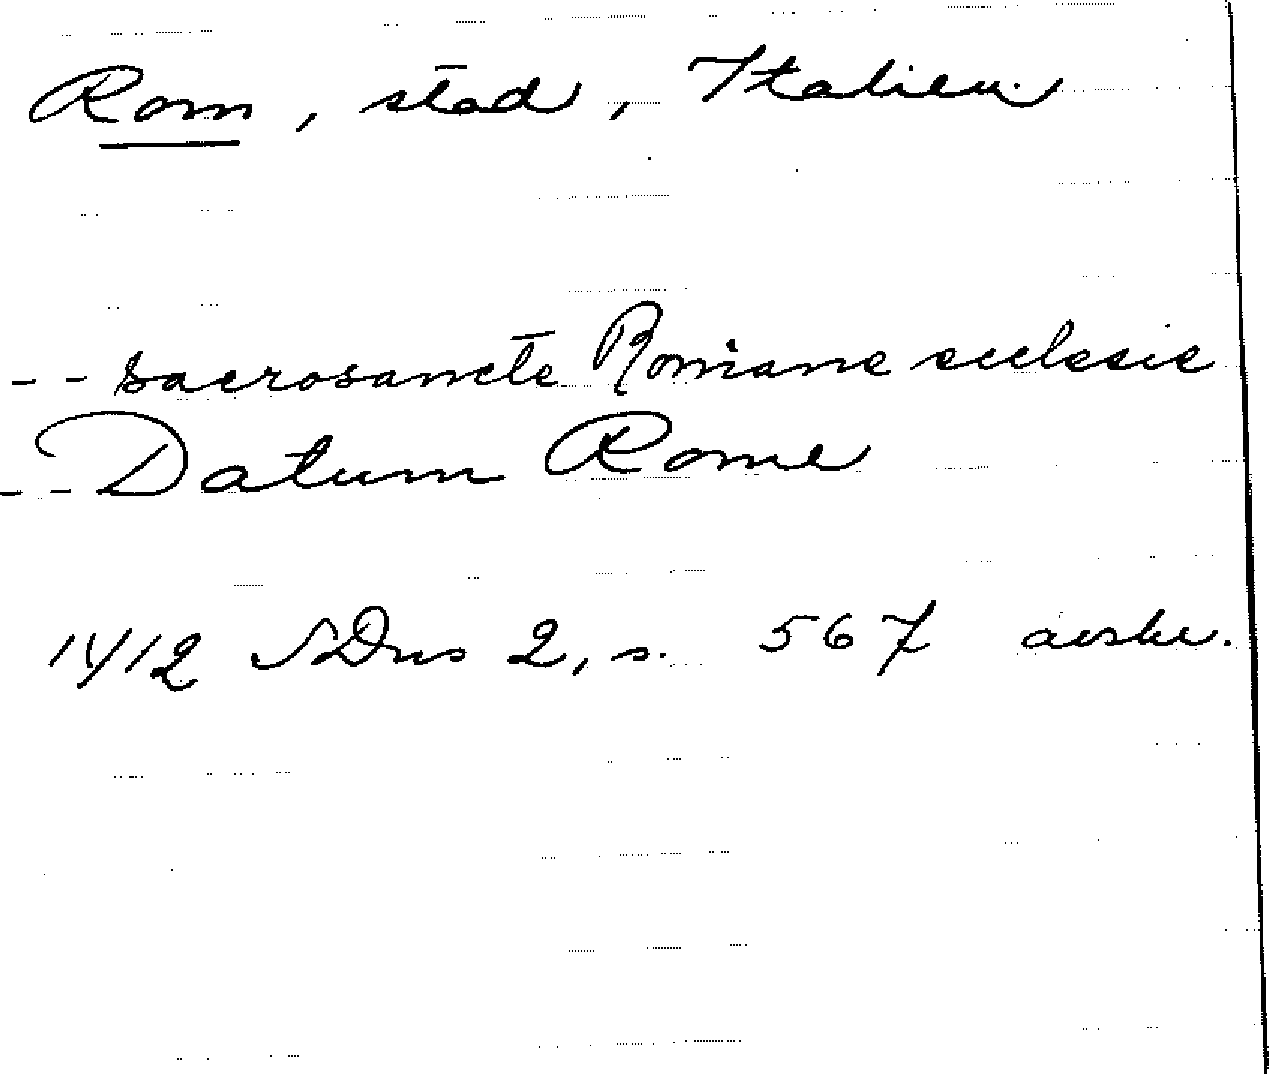 Rom, stad, Italien.
- - sacrosancte Romane ecclesie
- - Datum Rome
1412 SDns 2, s. 567 avskr.